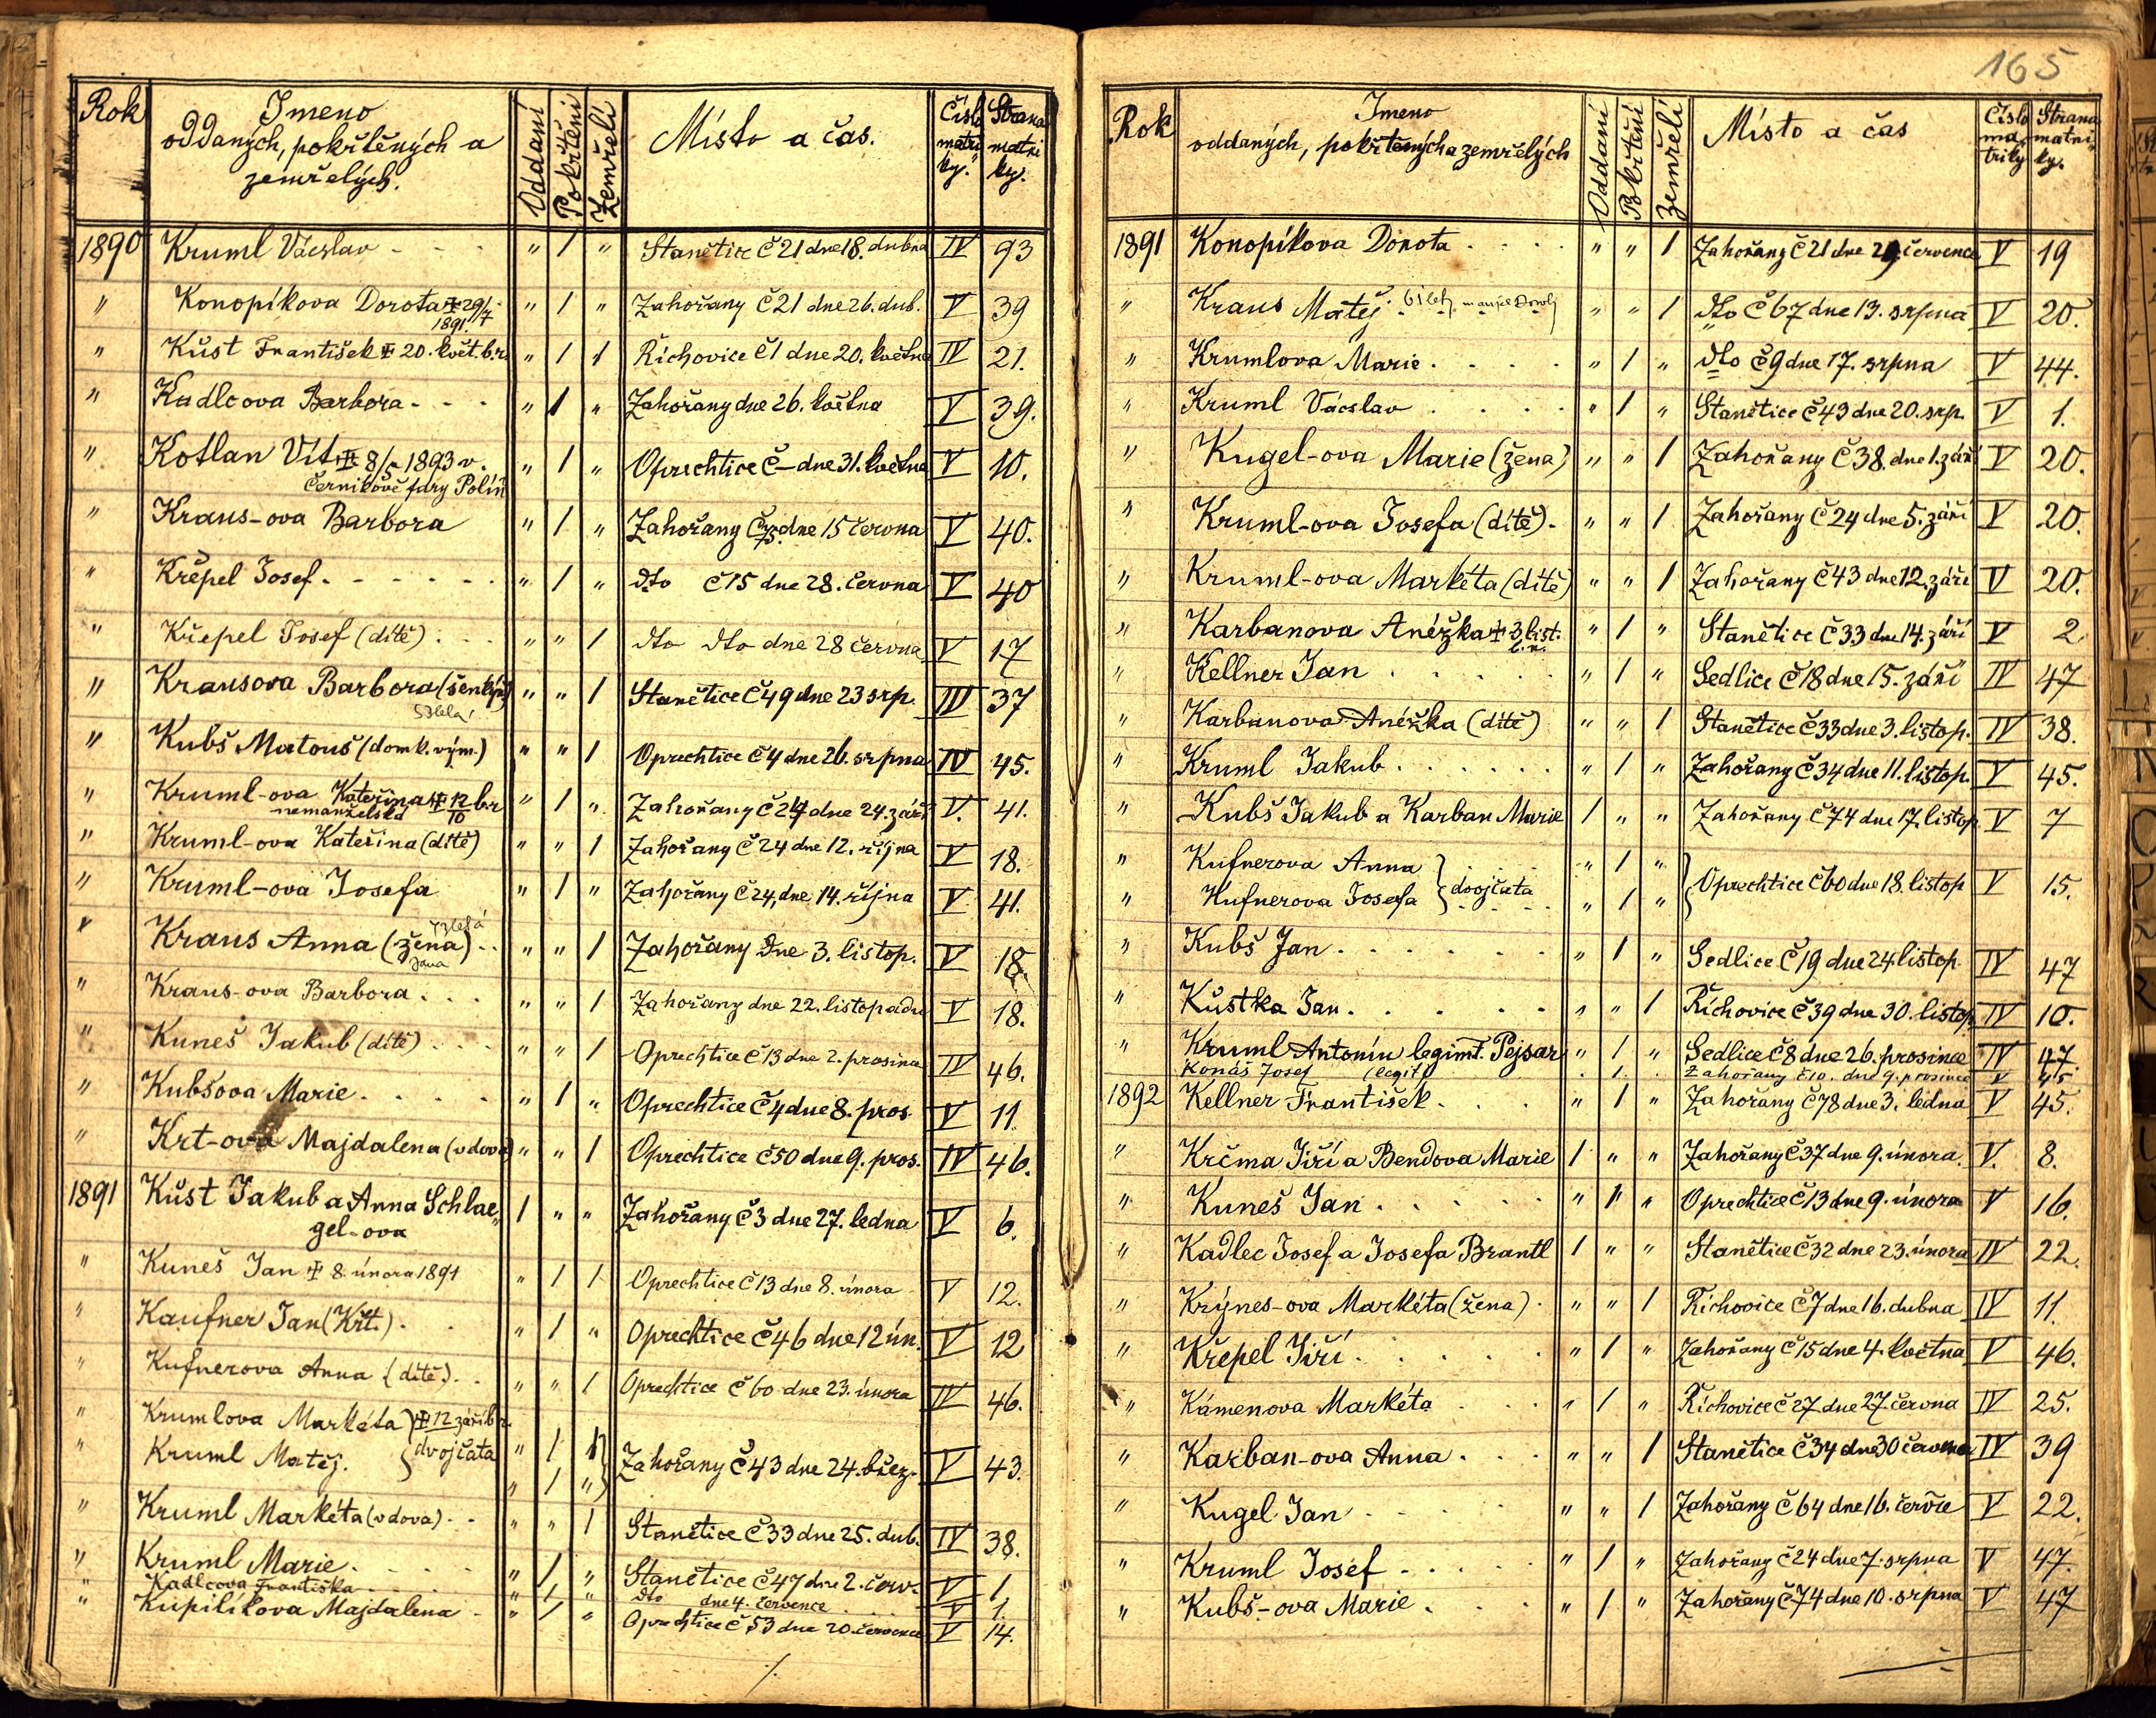 165
Rok Jmeno oddaných, pokřtěných a zemřelých. Oddaní Pokřtěni Zemřelí Místo a čas. Číslo matri ky. Strana matri ky.
1890 Kruml Václav - - - " 1 " Stanětice Č 21 dne 18. dubna IV 93
" Konopíkova Dorota ✝ 29/7 1891. " 1 " Zahořany Č 21 dne 26. dub. V 39
" Kůst František ✝ 20. květ. b.r. " 1 1 Řichovice Č 1 dne 20. května IV 21.
" Kadlcova Barbora - - - " 1 " Zahořany dne 26. května V 39.
" Kotlan Vít ✝ 8/5 1893 v. " 1 " Oprechtice Č — dne 31. května V 10.
Černíkově fary Polín
" Kraus-ova Barbora " 1 " Zahořany Č 75 dne 15 června V 40.
" Křepel Josef. - - - - - " 1 " dto Č 15 dne 28. června V 40
" Křepel Josef (dítě) . . . " " 1 dto dto dne 28 června V 17
" Krausova Barbora " " 1 Stanětice Č 49 dne 23 srp. IV 37
" Kubš Matouš (domk. vým.) " " 1 Oprechtice Č 4 dne 26. srpna IV 45.
" Kruml-ova Kateřina ✝ 12/10 b.r. " 1 " Zahořany Č 24 dne 24. září V. 41.
nemanželská
" Kruml-ova Kateřina (dítě) " " 1 Zahořany Č 24 dne 12. října V 18.
" Kruml-ova Josefa " 1 " Zahořany Č 24, dne 14. října V 41.
" Kraus Anna (žena) . . " " 1 Zahořany dne 3. listop. V 18.
" Kraus-ova Barbora . . . " " 1 Zahořany dne 22. listopadu V 18.
" Kuneš Jakub (dítě) . . . " " 1 Oprechtice Č 13 dne 2. prosince IV 46.
" Kubšova Marie . . . . . " 1 " Oprechtice Č 4 dne 8. pros. V 11.
" Krt-ova Majdalena (vdova) " " 1 Oprechtice Č 50 dne 9. pros. IV 46.
1891 Kůst Jakub a Anna Schlae„ 1 " " Zahořany Č 3 dne 27. ledna V 6.
gel-ova
" Kuneš Jan ✝ 8. února 1891 " 1 1 Oprechtice Č 13 dne 8. února V 12.
" Kaufner Jan (Křt.) . . " 1 " Oprechtice Č 46 dne 12 ún. V 12
" Kufnerova Anna (dítě) . . " " 1 Oprechtice Č 60 dne 23. února IV 46.
" Krumlova Markéta ✝ 12 září b.r. " 1 1
" Kruml Matěj. } dvojčata " 1 " Zahořany Č 43 dne 24. břez. V 43.
" Kruml Markéta (vdova) . . " " 1 Stanětice Č 33 dne 25. dub. IV 38.
" Kruml Marie . . . . . " 1 " Stanětice Č 47 dne 2. červ. V 1
" Kadlcova Františka . . . " 1 " dto dne 4. července V 1.
" Kupilíkova Majdalena - " 1 " Oprechtice Č 53 dne 20. července V 14.
Rok Jmeno oddaných, pokřtěných a zemřelých Oddaní Pokřtění Zemřelí Místo a čas Číslo ma„ triky Strana matri„ ky.
1891 Konopíkova Dorota . . . . " " 1 Zahořany Č 21 dne 29. července V 19
" Kraus Matěj 61 let " " 1 dto Č 67 dne 13. srpna V 20.
" Krumlova Marie . . . . " 1 " dto Č 9 dne 17. srpna V 44.
" Kruml Václav . . . . " 1 " Stanětice Č 43 dne 20. srp. V 1.
" Kugel-ova Marie (žena) " " 1 Zahořany Č 38. dne 1. září V 20.
" Kruml-ova Josefa (dítě) . " " 1 Zahořany Č 24 dne 5. září V 20.
" Kruml-ova Markéta (dítě) " " 1 Zahořany Č 43 dne 12. září V 20.
" Karbanova Anéžka ✝ 3. list. " 1 " Stanětice Č 33 dne 14. září V 2
" Kellner Jan . . . . . " 1 " Sedlice Č 18 dne 15. září IV 47
" Karbanova Anéžka (dítě) " " 1 Stanětice Č 33 dne 3. listop. IV 38.
" Kruml Jakub . . . . . . " 1 " Zahořany Č 34 dne 11. listop. V 45.
" Kubš Jakub a Karban Marie 1 " " Zahořany Č 74 dne 17. listop. V 7
" Kufnerova Anna . . . . " 1 "
" Kufnerova Josefa } dvojčata " 1 " } Oprechtice Č 60 dne 18. listop V 15.
" Kubš Jan . . . . . . " 1 " Sedlice Č 19 dne 24 listop. IV 47
" Kůstka Jan . . . . . . " " 1 Řichovice Č 39 dne 30. listop. IV 10.
" Kruml Antonín legimt. Pejsar " 1 " Sedlice Č 8 dne 26. prosince IV 47.
Konáš Josef (legit) . 1 . Zahořany Č 10. dne 9. prosince V 45
1892 Kellner František . . . " 1 " Zahořany Č 78 dne 3. ledna V 45.
" Krčma Jiří a Bendova Marie 1 " " Zahořany Č 37 dne 9. února. V. 8.
" Kuneš Jan . . . . . " 1 " Oprechtice Č 13 dne 9. února V 16.
" Kadlec Josef a Josefa Brantl 1 " " Stanětice Č 32 dne 23. února IV 22.
" Krýnes-ova Markéta (žena) . " " 1 Řichovice Č 7 dne 16. dubna IV 11.
" Křepel Jiří . . . . . . " 1 " Zahořany Č 15 dne 4. května V 46.
" Kámenova Markéta . . . " 1 " Řichovice Č 27 dne 27. června IV 25.
" Karban-ova Anna . . . " " 1 Stanětice Č 34 dne 30 IV 39
" Kugel Jan . . . . " " 1 Zahořany Č 64 dne 16. červce V 22.
" Kruml Josef . . . . " 1 " Zahořany Č 24 dne 7. srpna V 47.
" Kubš-ova Marie . . . " 1 " Zahořany Č 74 dne 10. srpna V 47